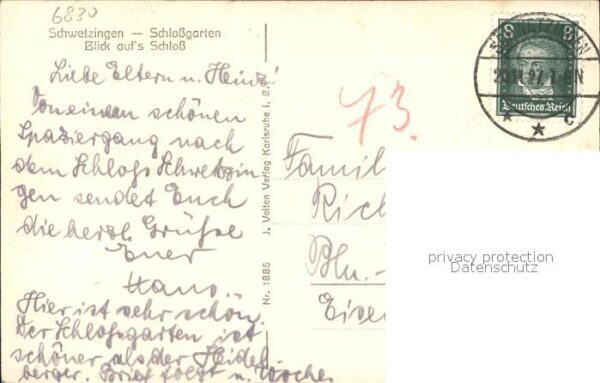 6830
Schwetzingen — Schloßgarten
Blick auf's Schloß
Liebe Eltern u. Heinz!
Von einem schönen
Spaziergang nach
dem Schloss Schwetzin
gen sendet Euch
die herzl. Grüße
Euer
Hans.
Hier ist sehr schön.
Der Schlossgarten ist
schöner als der Heidel
berger. Brief folgt n. Woche
Nr. 1885 J. Velten Verlag Karlsruhe i. B.
73.
8 8
Deutsches Reich
C
Famil
Rich
Bln.-
Eisen
privacy protection
Datenschutz